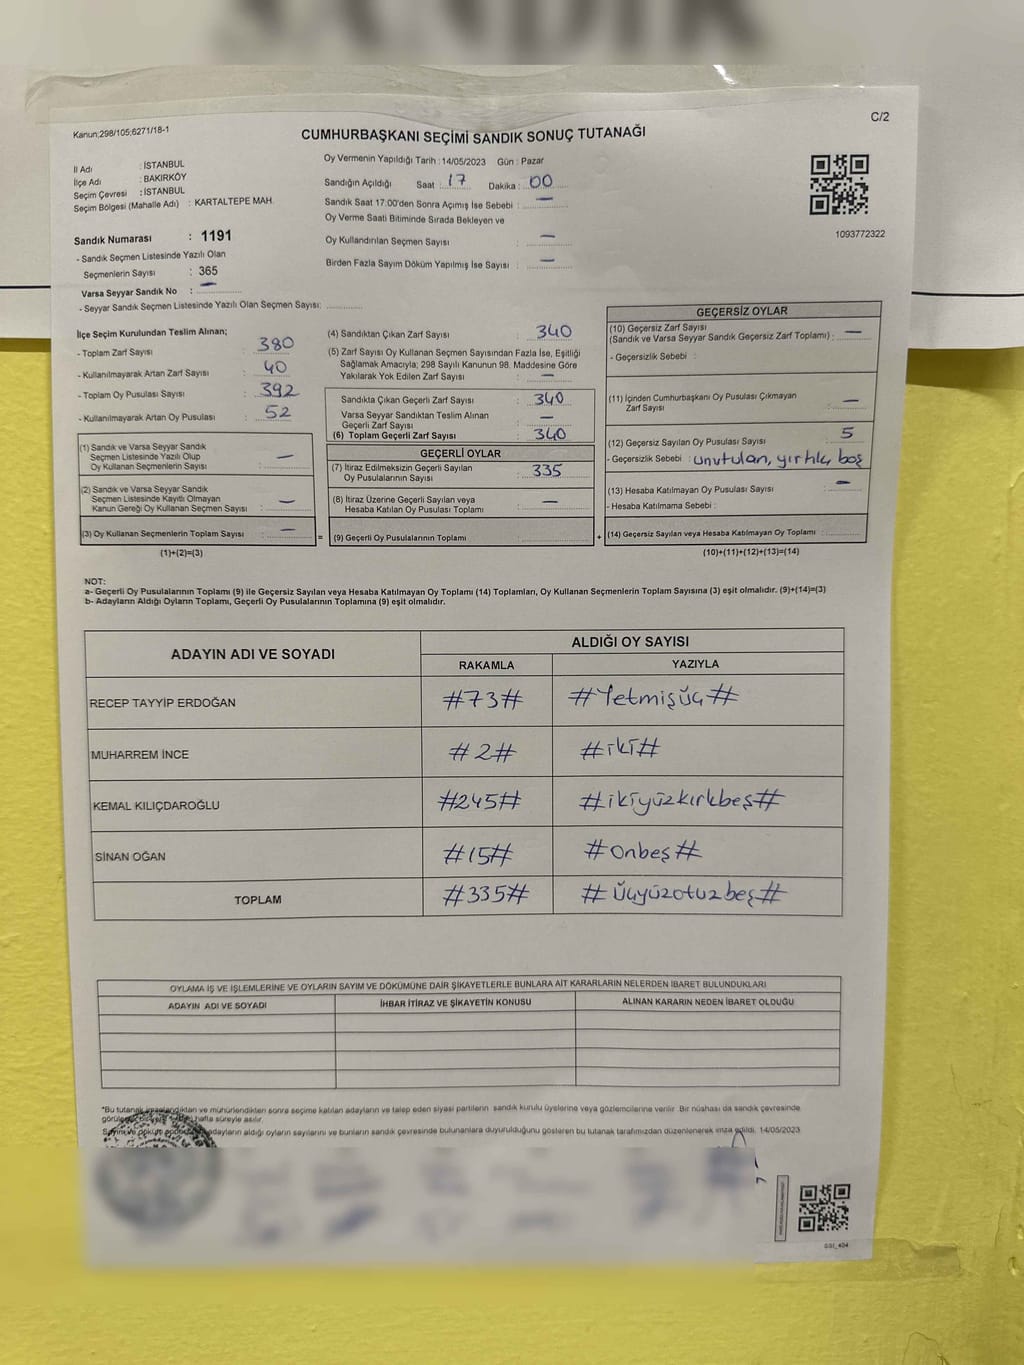 SANDIK
C/2
Kanun;298/105;6271/18-1
CUMHURBAŞKANI SEÇİMİ SANDIK SONUÇ TUTANAĞI
İl Adı : İSTANBUL
İlçe Adı : BAKIRKÖY
Seçim Çevresi : İSTANBUL
Seçim Bölgesi (Mahalle Adı) : KARTALTEPE MAH.
Sandık Numarası : 1191
- Sandık Seçmen Listesinde Yazılı Olan
Seçmenlerin Sayısı : 365
Varsa Seyyar Sandık No : —
- Seyyar Sandık Seçmen Listesinde Yazılı Olan Seçmen Sayısı:
Oy Vermenin Yapıldığı Tarih : 14/05/2023 Gün : Pazar
Sandığın Açıldığı Saat : 17 Dakika : 00
Sandık Saat 17:00'den Sonra Açımış İse Sebebi : —
Oy Verme Saati Bitiminde Sırada Bekleyen ve
Oy Kullandırılan Seçmen Sayısı : —
Birden Fazla Sayım Döküm Yapılmış İse Sayısı : —
1093772322
İlçe Seçim Kurulundan Teslim Alınan;
- Toplam Zarf Sayısı : 380
- Kullanılmayarak Artan Zarf Sayısı : 40
- Toplam Oy Pusulası Sayısı : 392
- Kullanılmayarak Artan Oy Pusulası : 52
(1) Sandık ve Varsa Seyyar Sandık
Seçmen Listesinde Yazılı Olup
Oy Kullanan Seçmenlerin Sayısı : —
(2) Sandık ve Varsa Seyyar Sandık
Seçmen Listesinde Kayıtlı Olmayan
Kanun Gereği Oy Kullanan Seçmen Sayısı : —
(3) Oy Kullanan Seçmenlerin Toplam Sayısı : —
(1)+(2)=(3)
(4) Sandıktan Çıkan Zarf Sayısı : 340
(5) Zarf Sayısı Oy Kullanan Seçmen Sayısından Fazla İse, Eşitliği
Sağlamak Amacıyla; 298 Sayılı Kanunun 98. Maddesine Göre
Yakılarak Yok Edilen Zarf Sayısı : —
Sandıkta Çıkan Geçerli Zarf Sayısı : 340
Varsa Seyyar Sandıktan Teslim Alınan
Geçerli Zarf Sayısı : —
(6) Toplam Geçerli Zarf Sayısı : 340
GEÇERLİ OYLAR
(7) İtiraz Edilmeksizin Geçerli Sayılan
Oy Pusulalarının Sayısı : 335
(8) İtiraz Üzerine Geçerli Sayılan veya
Hesaba Katılan Oy Pusulası Toplamı : —
= (9) Geçerli Oy Pusulalarının Toplamı :
GEÇERSİZ OYLAR
(10) Geçersiz Zarf Sayısı
(Sandık ve Varsa Seyyar Sandık Geçersiz Zarf Toplamı) : —
- Geçersizlik Sebebi :
(11) İçinden Cumhurbaşkanı Oy Pusulası Çıkmayan
Zarf Sayısı : —
(12) Geçersiz Sayılan Oy Pusulası Sayısı : 5
- Geçersizlik Sebebi : unutulan, yırtık, boş
(13) Hesaba Katılmayan Oy Pusulası Sayısı : —
- Hesaba Katılmama Sebebi :
+ (14) Geçersiz Sayılan veya Hesaba Katılmayan Oy Toplamı :
(10)+(11)+(12)+(13)=(14)
NOT:
a- Geçerli Oy Pusulalarının Toplamı (9) ile Geçersiz Sayılan veya Hesaba Katılmayan Oy Toplamı (14) Toplamları, Oy Kullanan Seçmenlerin Toplam Sayısına (3) eşit olmalıdır. (9)+(14)=(3)
b- Adayların Aldığı Oyların Toplamı, Geçerli Oy Pusulalarının Toplamına (9) eşit olmalıdır.
ADAYIN ADI VE SOYADI
ALDIĞI OY SAYISI
RAKAMLA YAZIYLA
RECEP TAYYİP ERDOĞAN #73# #Yetmişüç#
MUHARREM İNCE #2# #iki#
KEMAL KILIÇDAROĞLU #245# #ikiyüzkırkbeş#
SİNAN OĞAN #15# #Onbeş#
TOPLAM #335# #Üçyüzotuzbeş#
OYLAMA İŞ VE İŞLEMLERİNE VE OYLARIN SAYIM VE DÖKÜMÜNE DAİR ŞİKAYETLERLE BUNLARA AİT KARARLARIN NELERDEN İBARET BULUNDUKLARI
ADAYIN ADI VE SOYADI İHBAR İTİRAZ VE ŞİKAYETİN KONUSU ALINAN KARARIN NEDEN İBARET OLDUĞU
*Bu tutanak imzalandıktan ve mühürlendikten sonra seçime katılan adayların ve talep eden siyasi partilerin sandık kurulu üyelerine veya gözlemcilerine verilir. Bir nüshası da sandık çevresinde
hafta süreyle asılır.
adayların aldığı oyların sayılarını ve bunların sandık çevresinde bulunanlara duyurulduğunu gösteren bu tutanak tarafımızdan düzenlenerek imza edildi. 14/05/2023